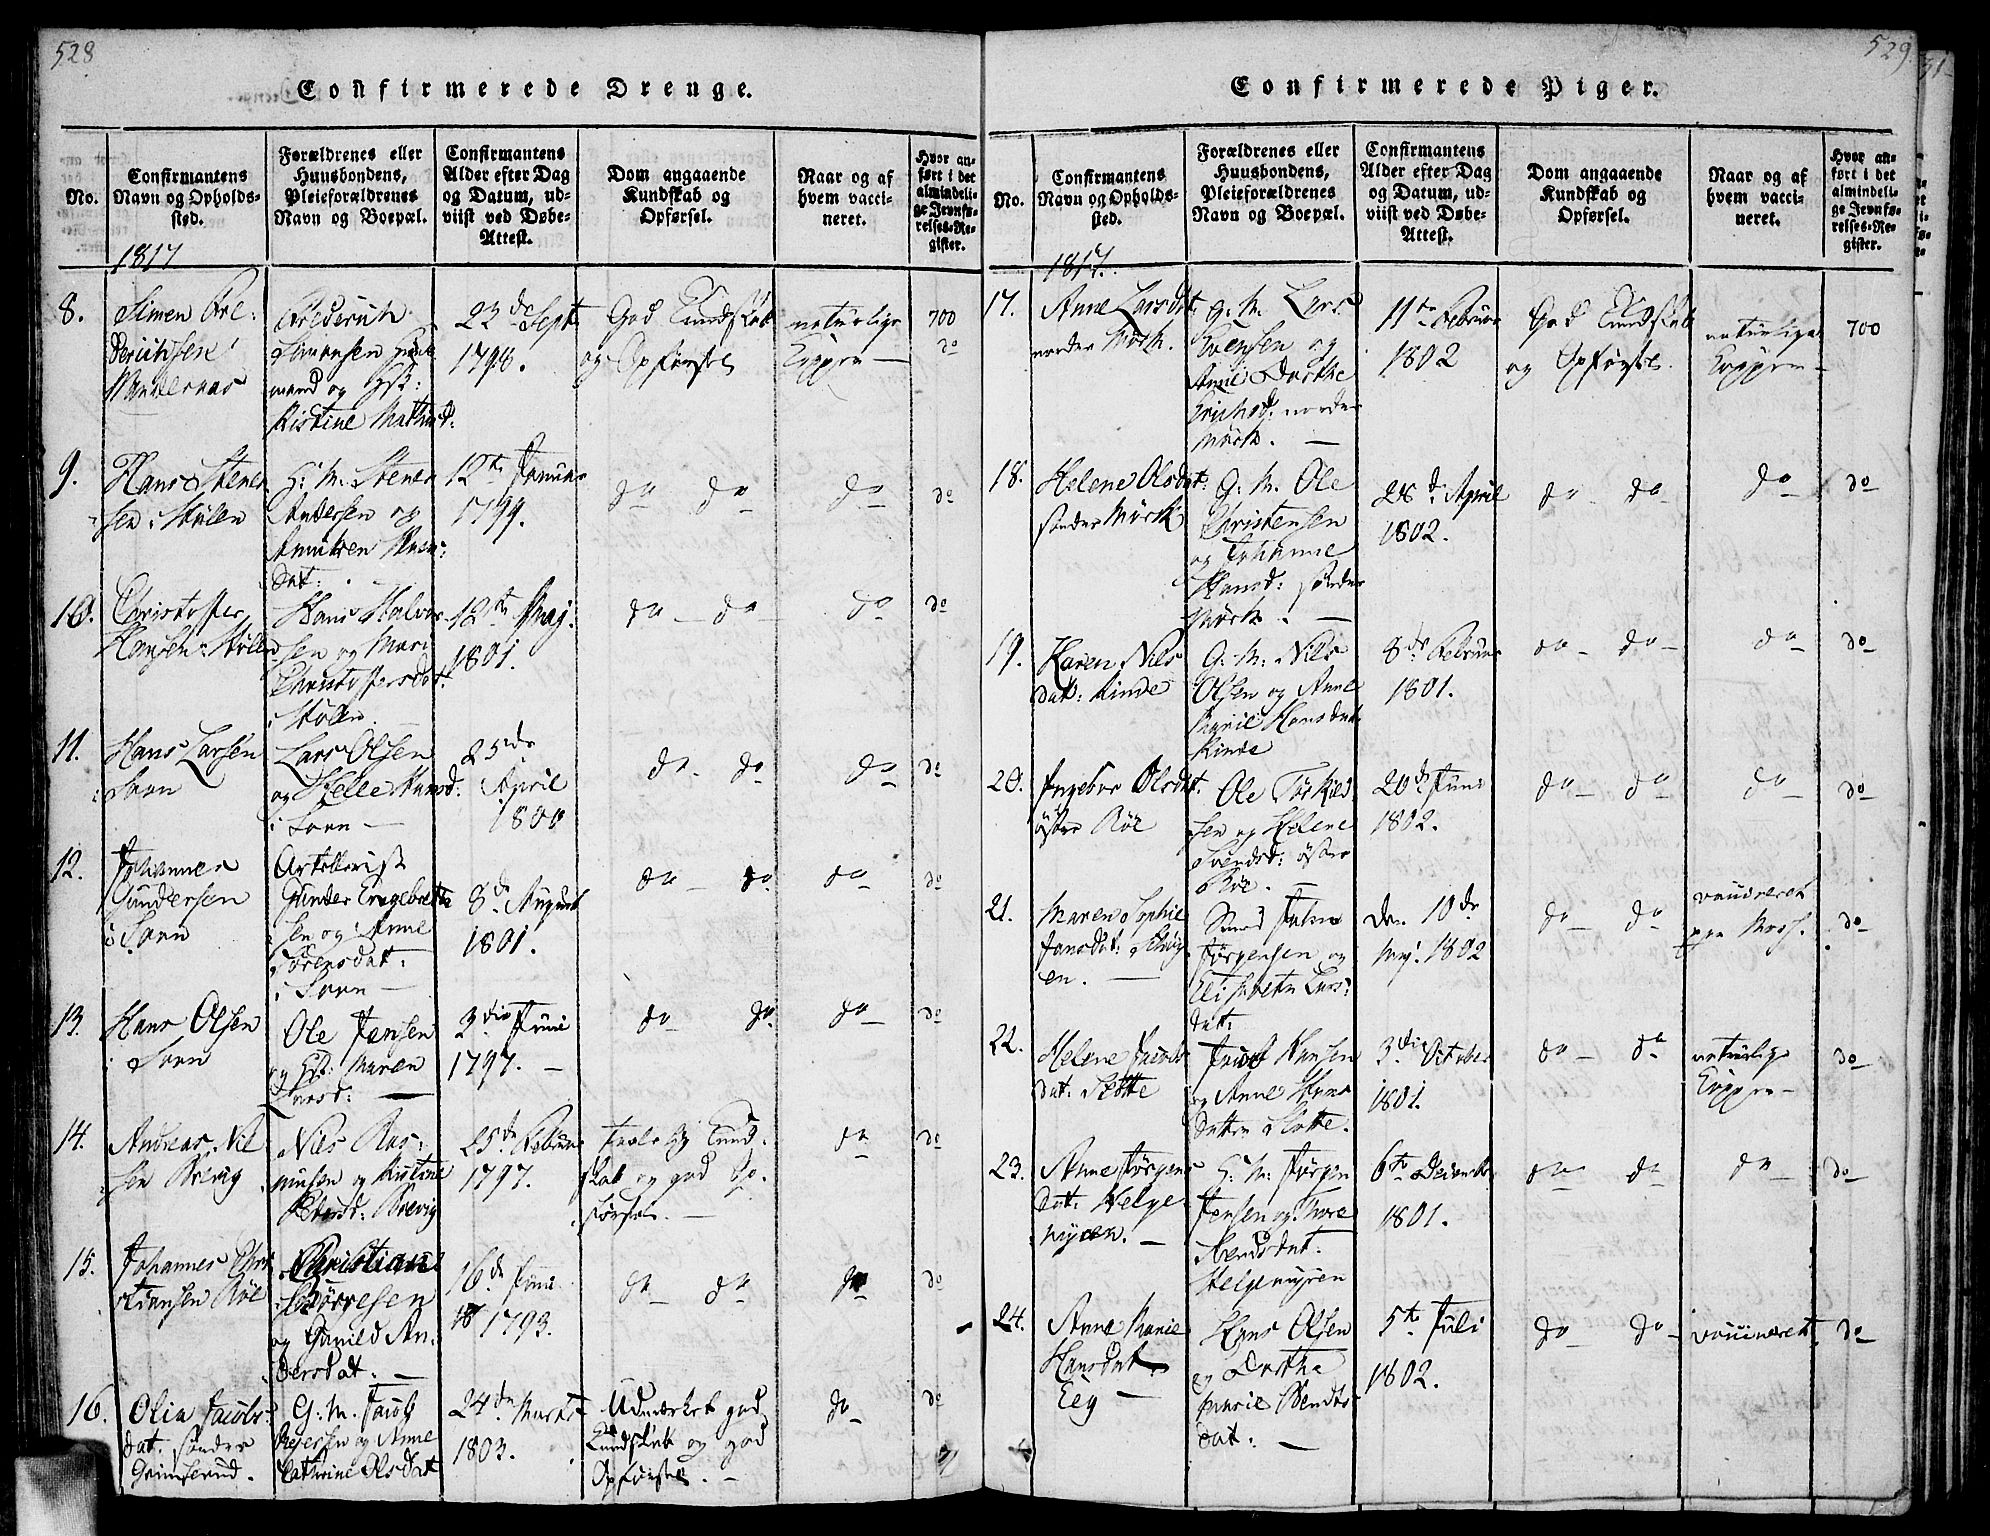 528
Confirmerede Drenge.
No.
Confirmantens
Navn og Opholds-
sted.
Forældrenes eller
Huusbondens,
Pleieforældrenes
Navn og Boepæl.
Confirmantens
Alder efter Dag
og Datum, ud-
viist ved Døbe-
Attest.
Dom angaaende
Kundskab og
Opførsel.
Naar og af
hvem vacci-
neret.
Hvor an-
ført i det
almindeli-
ge Jevnfø-
relses-Re-
gister.
1817
8.
Simen Fre:
derichsen
Frederich
Simonsen
mand og
Kistine Mathisd:
23de Sept
1798.
God Kundskab
og Opførsel
naturlige
Kopper —
700
do
9.
Hans Stener
sen i Stølen
G: M. Stener
Andersen og
dat:
12te Januar
1799.
do do
do
do
10.
Christopher
Hansen Stølen
Hans Halvor
sen og Mari
Christophersdat:
i Stølen
12te Maj:
1801.
do — do —
do
do
11.
Hans Larsen
i Soen
Lars Olsen
og Helle Hansd:
i Soen —
25de
April
1800
do — do
do
do
12.
Johannes
Gundersen
i Soen
Artellerist
Gunder Engebrett
sen og Anne
Sørensdat:
i Soen —
8de August
1801.
do — do
do —
do
13.
Hans Olsen
i Soen
Ole Jensen
og Maren
Larsd: —
3die Juni
1797. —
do — do
do —
do
14.
Andreas Nil
sen Brevig
Nils Ras:
musen og Kistine
Brevig
25de Februar
1797.
Kund:
skab og god Op:
førsel. —
do
do
15.
Johannes Chri
stiansen Röe
Christian
Børresen
og Gunild An:
dersdat: —
16de Juni
1793.
do — do —
do
do
16.
Olia Jacobs:
dat: sönder
Grimserud.
G: M. Jacob
Reiersen og Anne
Cathrine Olsdat
24de Marts
1803.
Udmærket god
Kundskab og god
Opførsel. —
do —
do
529
Confirmerede Piger.
No.
Confirmantens
Navn og Opholds-
sted.
Forældrenes eller
Huusbondens,
Pleieforældrenes
Navn og Boepæl.
Confirmantens
Alder efter Dag
og Datum, ud-
viist ved Døbe-
Attest.
Dom angaaende
Kundskab og
Opførsel.
Naar og af
hvem vacci-
neret.
Hvor an-
ført i det
almindeli-
ge Jevnfø-
relses-Re-
gister.
1817.
17.
Anne Larsdat:
norder Mörk.
G. M. Lars
Svensen og
Anne Dorthe
Erichsd: norder
Mörk. —
11te Februar
1802
God Kundskab
og Opførsel.
naturlige
Kopper —
700
18.
Helene Olsdat:
sönder Mörk
G: M. Ole
Christensen
og Johanne
Hansd: sönder
Mörk. —
28de April
1802.
do — do —
do —
do
19.
Karen Nils
dat: Kinde
G: M: Nils
Olsen og Anne
Marie Hansdat
Kinde
8de Februar
1801.
do — do —
do —
do
20.
Ingebor Olsdat:
öster Röe
Ole Torkild
sen og Helene
Svendsd: öster
Röe. —
20de Juni
1802.
do — do —
do —
do
21.
Maren Sophie
Jansdat:
en. —
Smed
Jørgensen og
Elisabeth Lars:
dat:
den 10de
Maj: 1802
do — do
vaccineret
paa Moss.
do
22.
Helene Jacobs
dat: Slotte
Jacob Hansen
og Anne Hans
datter Slotte.
3die October
1801.
do — do
naturlige
Kopper —
do
23.
Anne Jörgens
dat: Helge
myren. —
G: M: Jörgen
Jensen og Thore
Svendsdat:
Helgemyren
6te Decembr
1801.
do — do
do —
do
24.
Anne Marie
Hansdat
Eeg —
Hans Olsen
og Dorthe
Marie Bendts
dat: —
5te Juli
1802.
do — do —
vaccineret
do